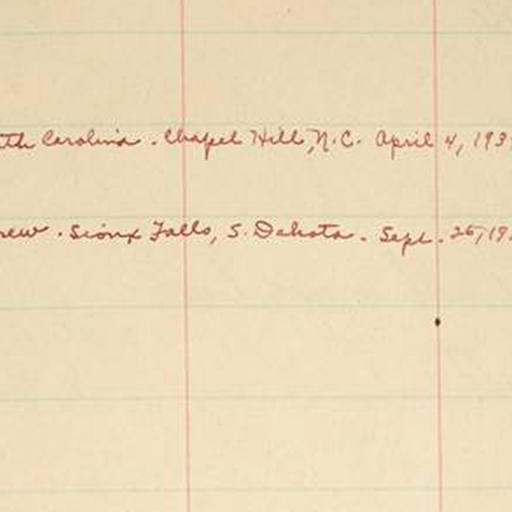 th Carolina. Chapel Hill, N.C. April 4, 193
rew. Sioux Falls, S. Dakota. Sept. 26, 19